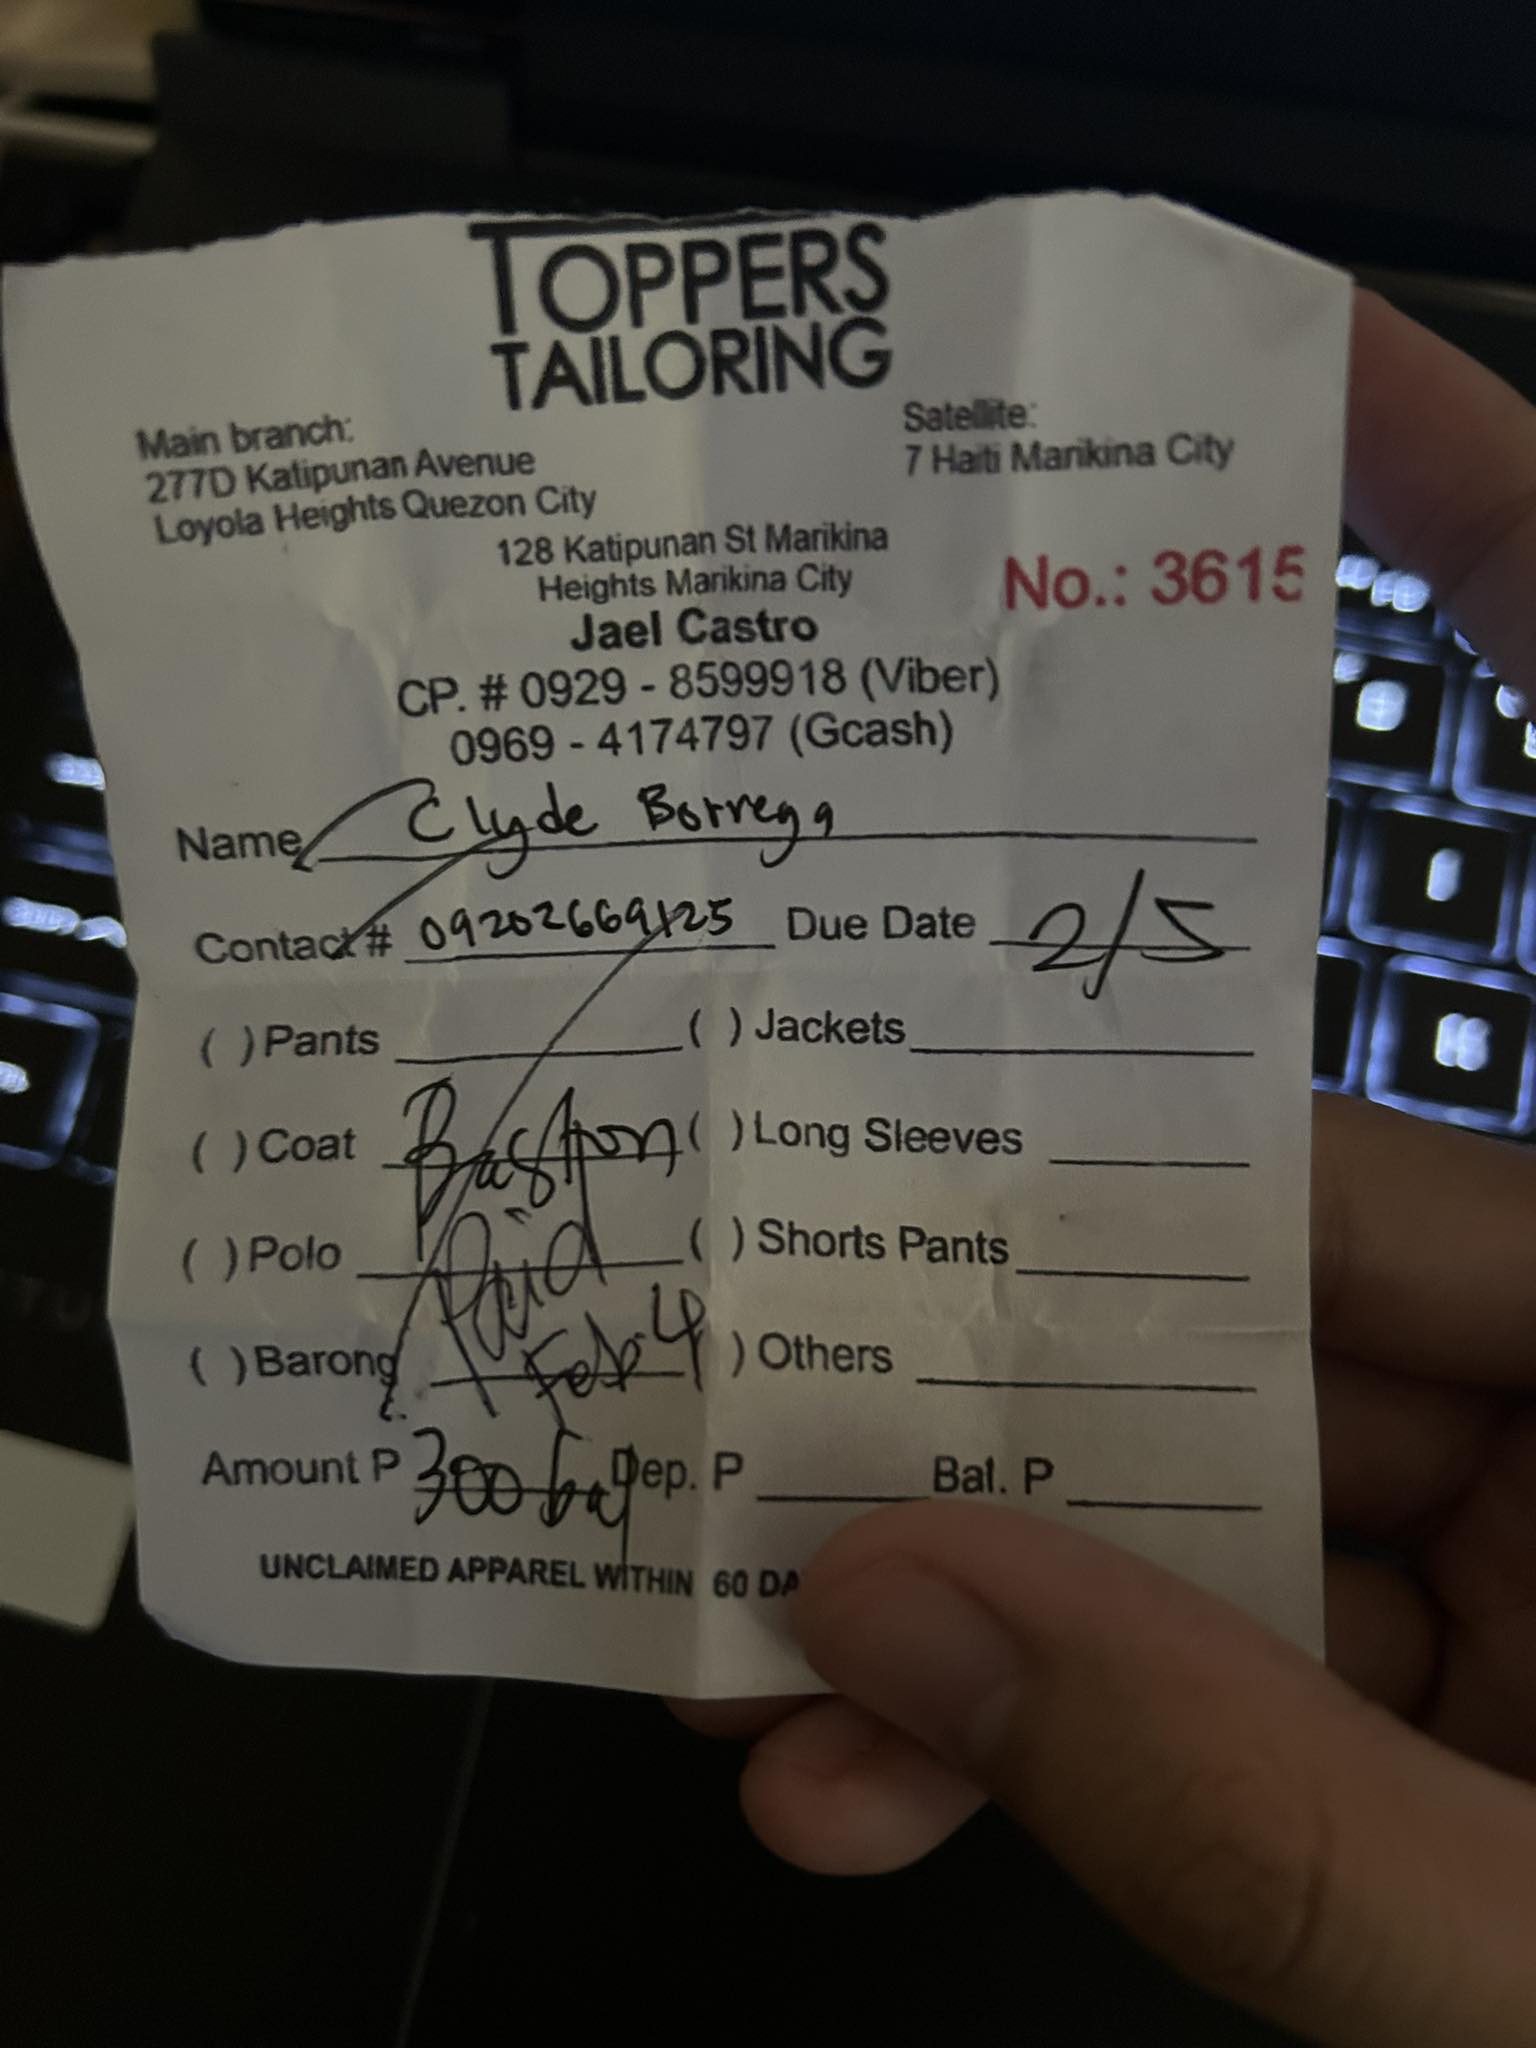 TOPPERS
TAILORING
Main branch:
277D Katipunan Avenue
Loyola Heights Quezon City
Satellite:
7 Haiti Marikina City
128 Katipunan St Marikina
Heights Marikina City
No.: 3615
Jael Castro
CP. # 0929 - 8599918 (Viber)
0969 - 4174797 (Gcash)
Name Clyde Borrega
Contact # 09202669125 Due Date 2/5
( ) Pants ( ) Jackets
( ) Coat Bastpon ( ) Long Sleeves
( ) Polo Paid ( ) Shorts Pants
( ) Barong Feb 4 ) Others
Amount P 300 Dep. P Bal. P
UNCLAIMED APPAREL WITHIN 60 DA